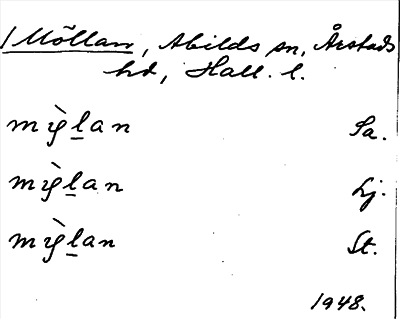 / Möllan, Abilds sn, Årstads
hd, Hall. l.
mỳlan Sa.
mỳlan Lj.
mỳlan St.
1948.